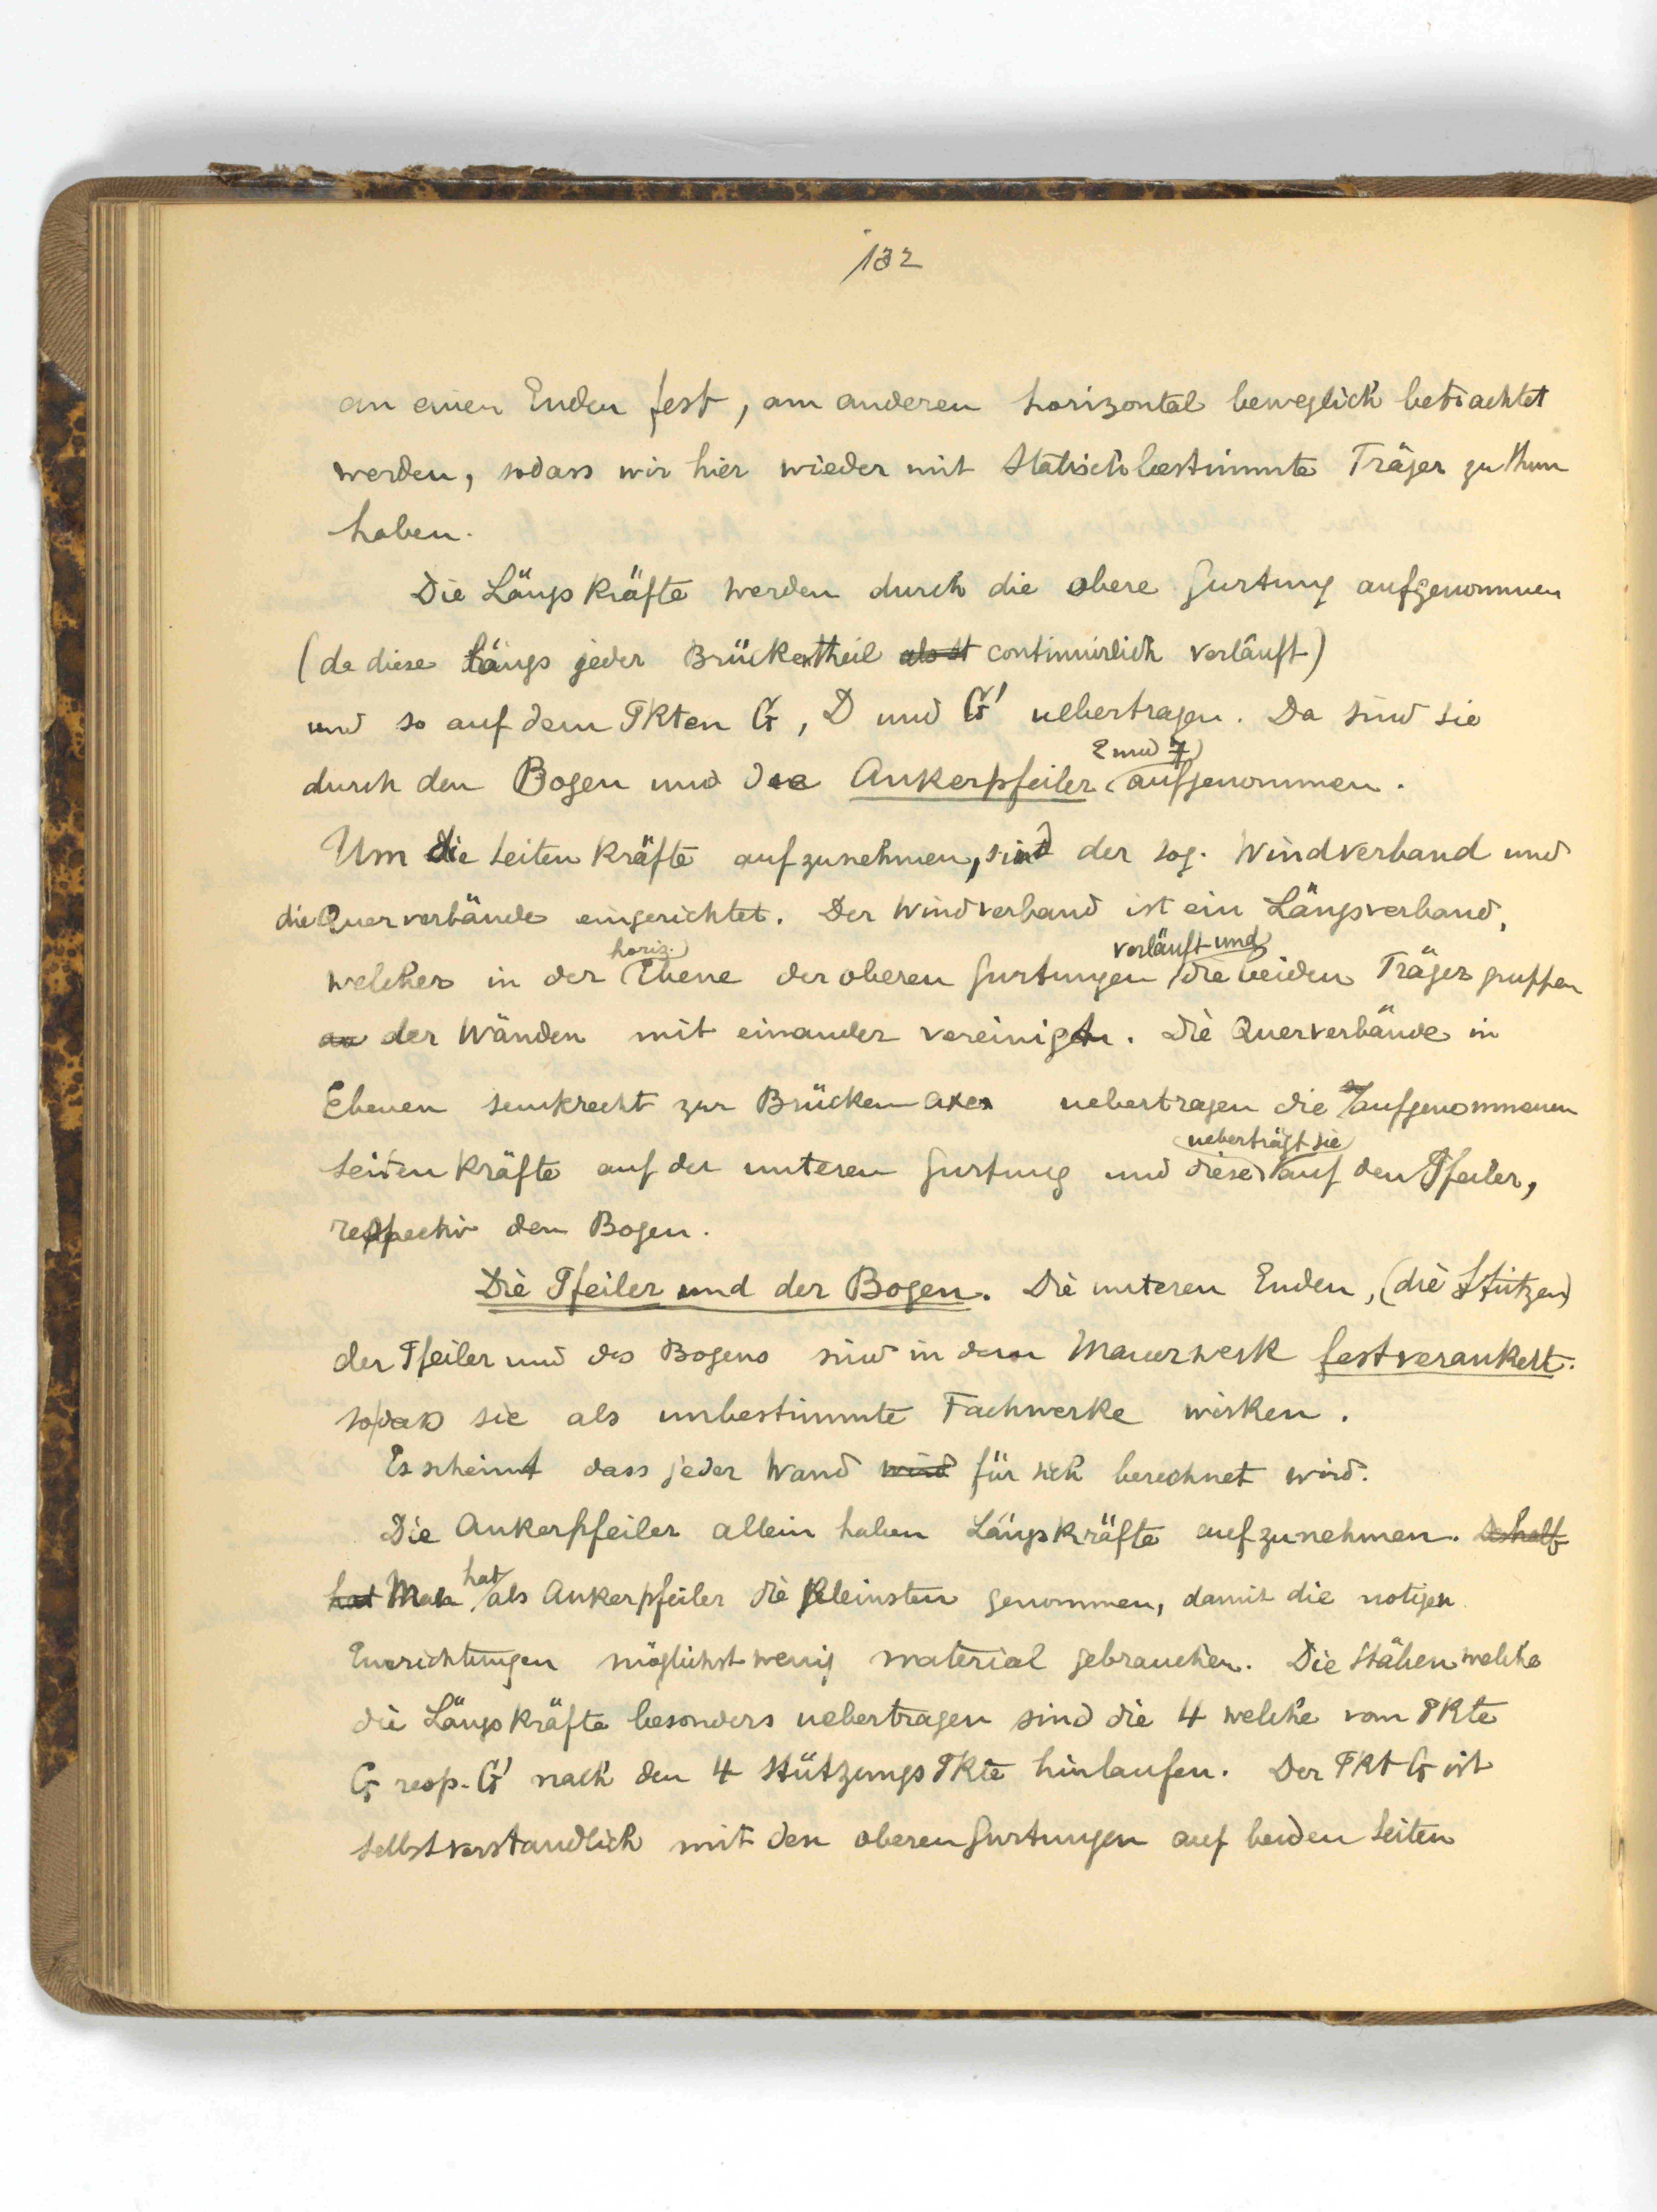 132
an einen Enden fest, am anderen horizontal beweglich betrachtet
werden, sodass wir hier wieder mit statisch bestimmte Träger zu thun
haben.
Die Längskräfte werden durch die obere Gurtung aufgenommen
(da diese längs jeder Brückentheil continuirlich verläuft)
und so auf dem Pkten G, D und G' uebertragen. Da sind sie
durch den Bogen und die Ankerpfeiler 2 und 7 aufgenommen.
Um die Seitenkräfte aufzunehmen, sind der sog. Windverband und
die Querverbände eingerichtet. Der Windverband ist ein Längsverband,
welcher in der horiz. Ebene der oberen Gurtungen verläuft und die beiden Trägergruppen
der Wänden mit einander vereinigt. Die Querverbände in
Ebenen senkrecht zur Brückenaxe uebertragen die aufgenommenen
Seitenkräfte auf der unteren Gurtung und diese ueberträgt sie auf den Pfeiler,
respectiv den Bogen.
Die Pfeiler und der Bogen. Die unteren Enden, (die Stützen)
der Pfeiler und des Bogens sind in dem Mauerwerk fest verankert.
sodass sie als unbestimmte Fachwerke wirken.
Es scheint dass jeder Wand wird für sich berechnet wird.
Die Ankerpfeiler allein haben Längskräfte aufzunehmen. Deshalb
hat Man hat als Ankerpfeiler die kleinsten genommen, damit die notigen
Einrichtungen möglichst wenig material gebrauchen. Die Stäben welche
die Längskräfte besonders uebertragen sind die 4 welche vom Pkte
G resp. G' nach den 4 Stützungs Pkte hinlaufen. Der Pkt G ist
selbstverstandlich mit den oberen Gurtungen auf beiden Seiten